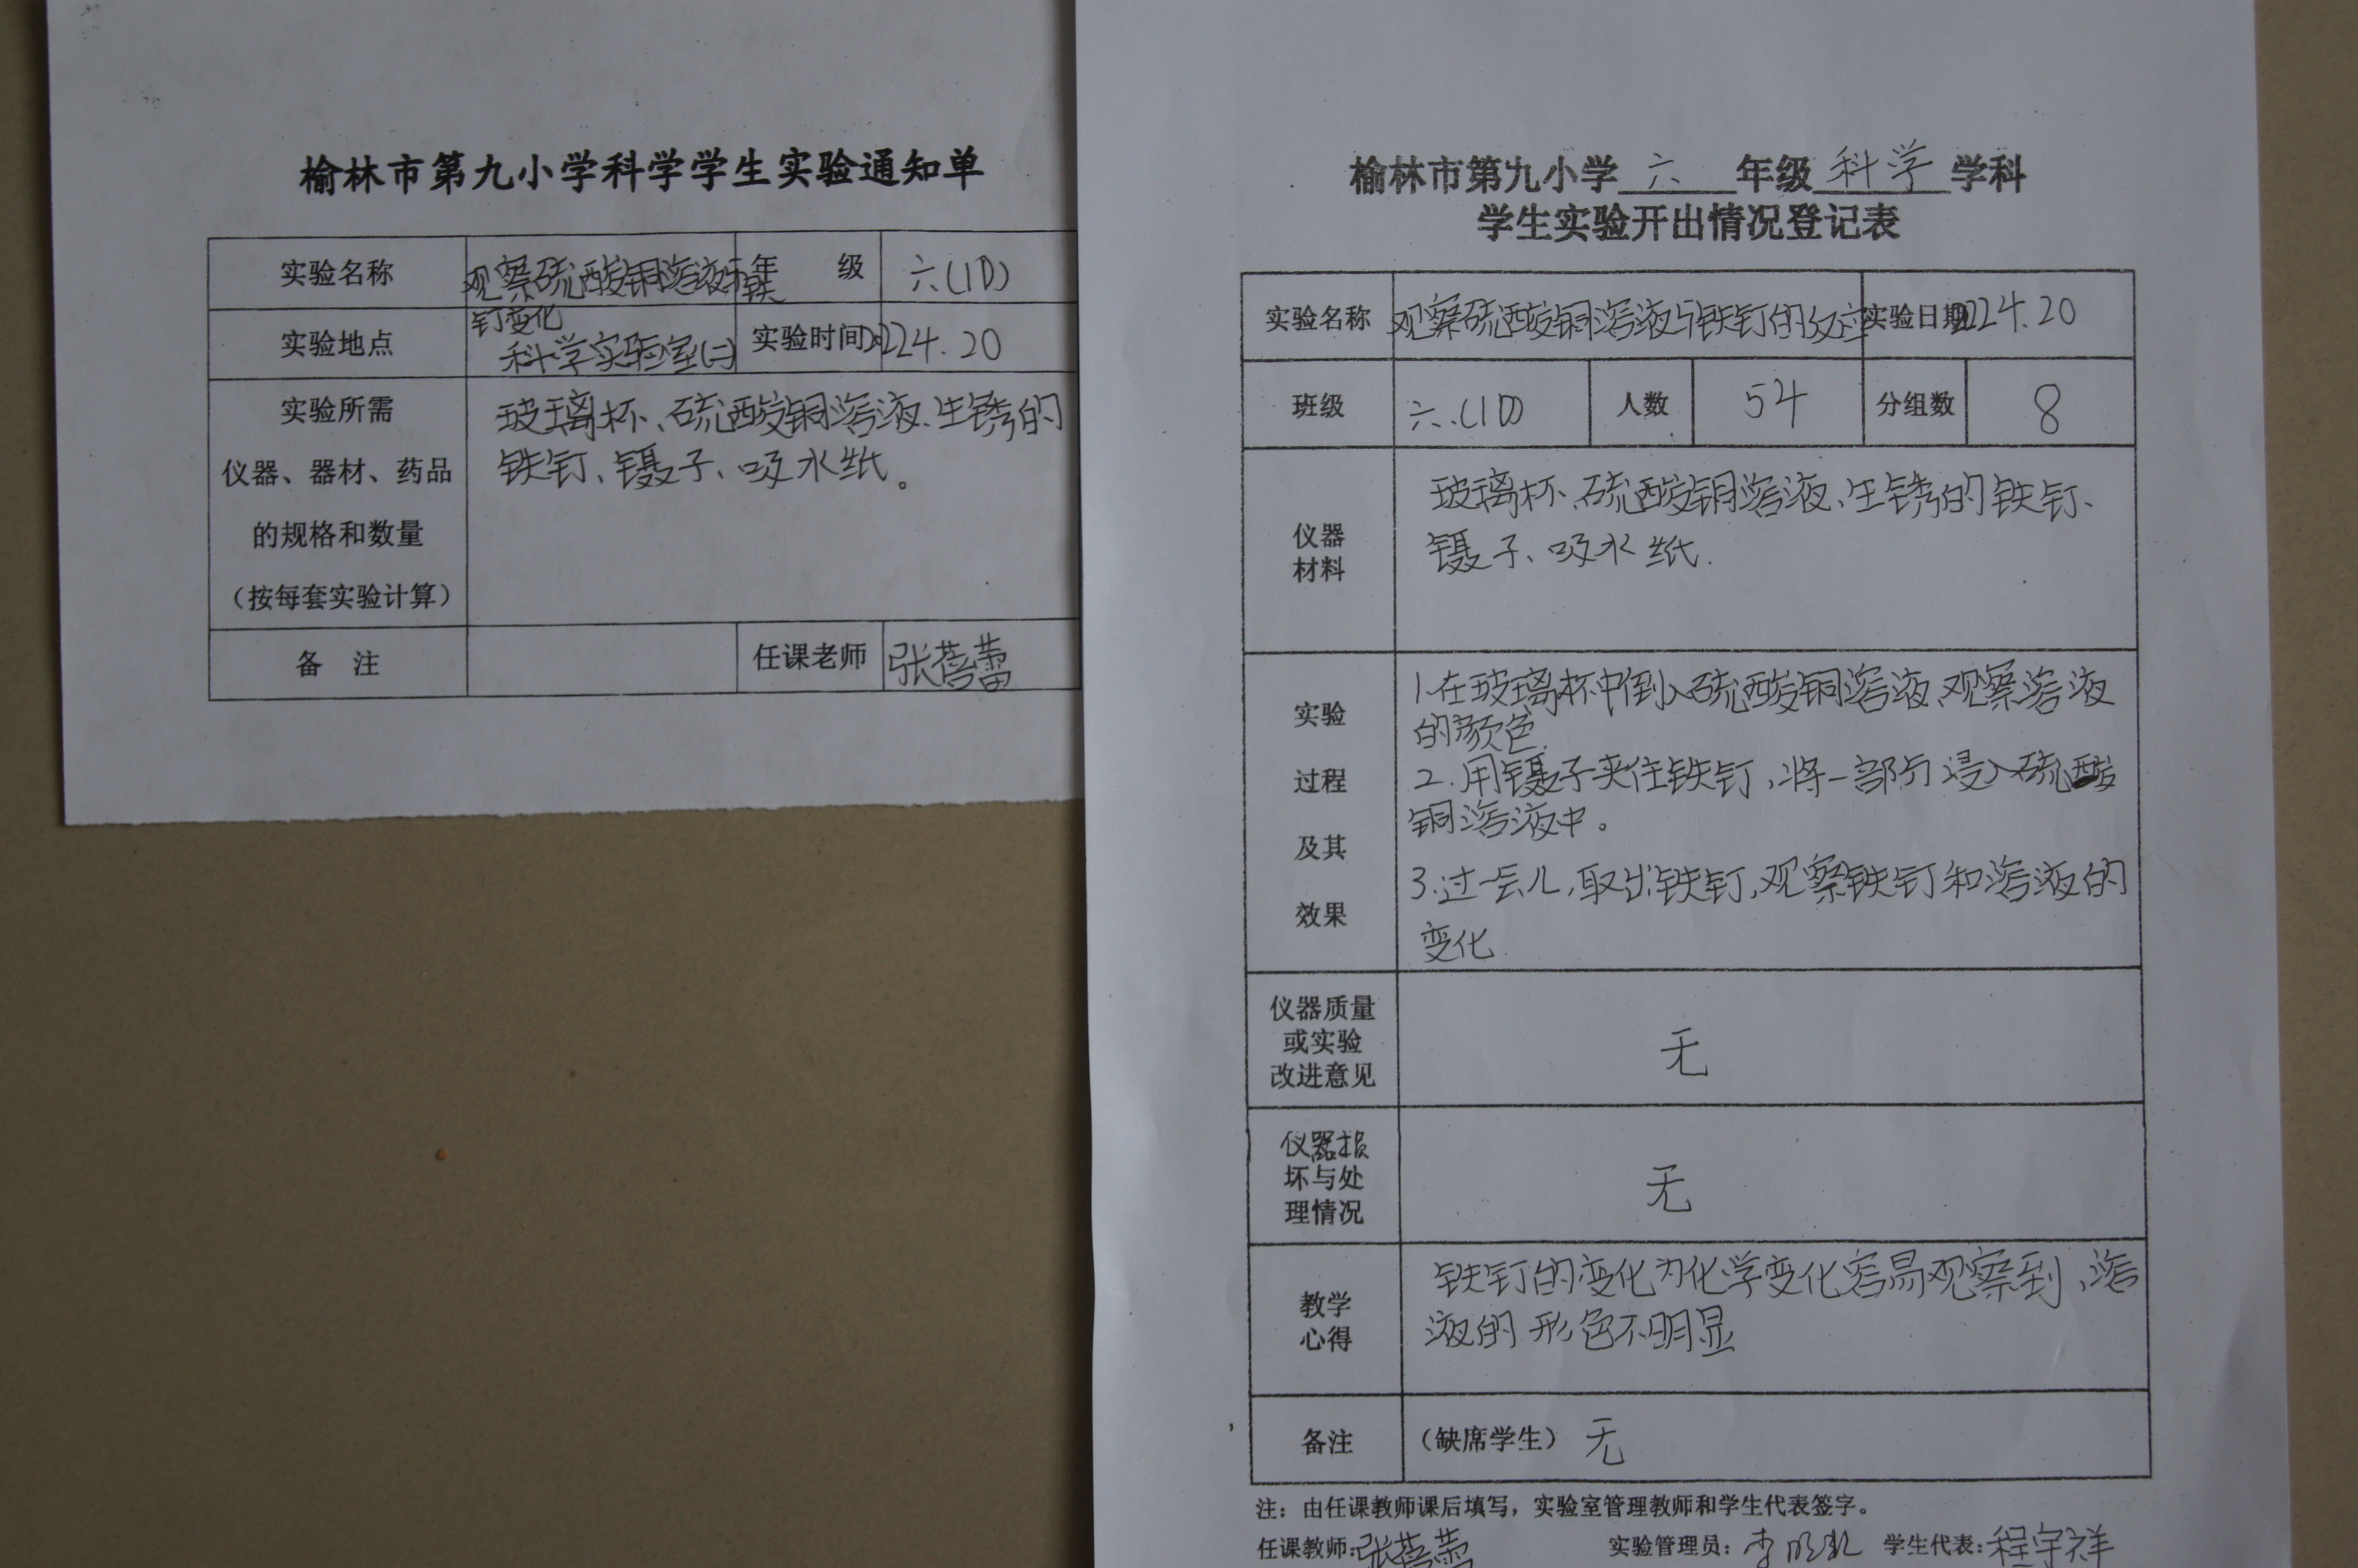 榆林市第九小学科学学生实验通知单
实验名称 观察硫酸铜溶液和铁钉变化 年 级 六(10)
实验地点 科学实验室(二) 实验时间 2022 4.20
实验所需
仪器、器材、药品
的规格和数量
(按每套实验计算)
玻璃杯、硫酸铜溶液、生锈的
铁钉、镊子、吸水纸。
备 注 任课老师 张蓓蕾
榆林市第九小学 六 年级 科学 学科
学生实验开出情况登记表
实验名称 观察硫酸铜溶液与铁钉的反应 实验日期 2022 4.20
班级 六.(10) 人数 54 分组数 8
仪器
材料
玻璃杯、硫酸铜溶液、生锈的铁钉、
镊子、吸水纸.
实验
过程
及其
效果
1.在玻璃杯中倒入硫酸铜溶液,观察溶液
的颜色.
2.用镊子夹住铁钉,将一部分浸入硫酸
铜溶液中。
3.过一会儿,取出铁钉,观察铁钉和溶液的
变化.
仪器质量
或实验
改进意见
无
仪器损
坏与处
理情况
无
教学
心得
铁钉的变化为化学变化容易观察到,溶
液的形色不明显
备注 (缺席学生) 无
注:由任课教师课后填写,实验室管理教师和学生代表签字。
任课教师:张蓓蕾 实验管理员: 学生代表:程宇祥